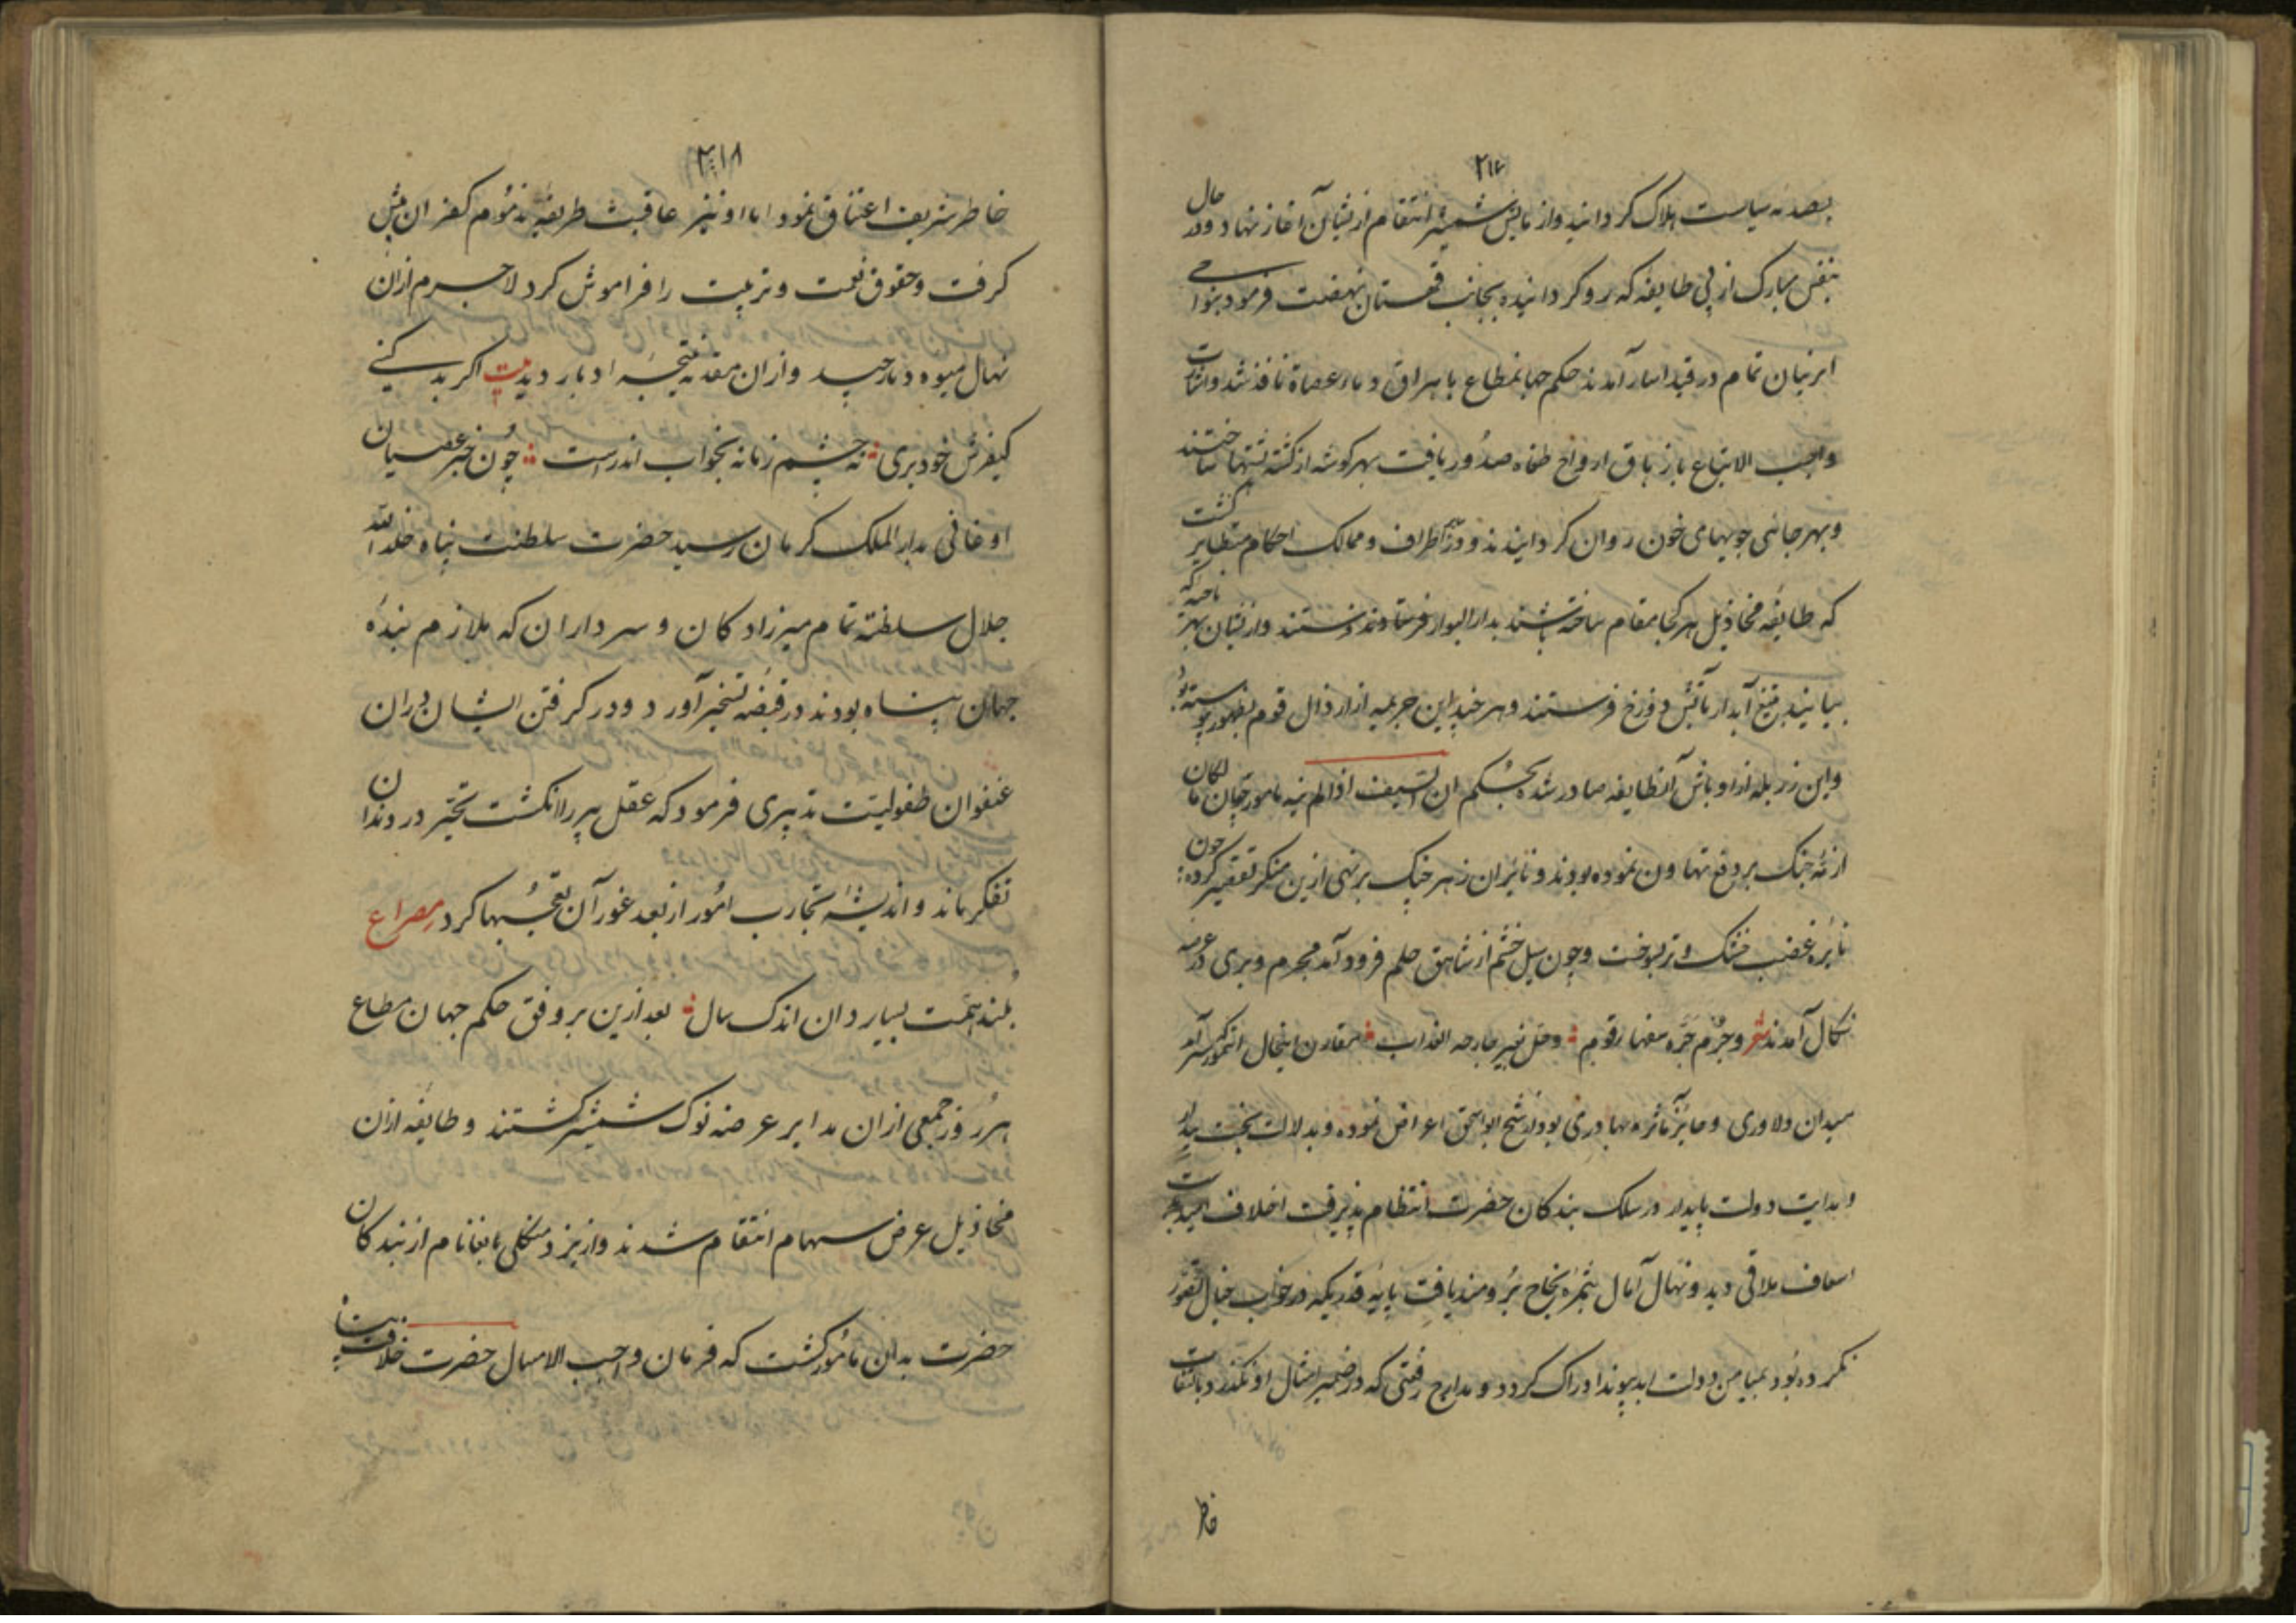 ۲۱۷
بصدمه سیاست هلاک کردانید و از مالش شمشیر انتقام ازیشان آغاز نهاد و در حال
بنفس مبارک از پی طایفه که رو کردانیده بجانب قهستان نهضت فرمود بنواحی
ایشان تمام در قید اسار آمدند حکم جهانمطاع باهراق دماء عصاة نافذ شد و اشارت
واجب الاتباع بازهاق ارواح طغاه صدور یافت بهر کوشه از کشته پشتها ساختند
و بهر جانبی جویهای خون روان کردانیدند و در اطراف و ممالک احکام متطایر کشت
که طایفه مخاذیل هر کجا مقام ساخته باشند بدار البوار فرستادند و ازیشان بهر ناحیه که
بیابند بتیغ آبدار بآتش دوزخ فرستند و هر چند این جریمه از ارذال قوم بظهور پیوسته بود
و این رزیله از اوباش آنطایفه صادر شده بحکم ان السیف اذا لم ینه مامور
از نه جنک بر دفع تهاون نموده بودند و نائران زهر چنک بر نهی ازین منکر تقصیر کرده چون
نایره غضب خشک و تر بسوخت و چون سیل خشم از شاهق حلم فرود آمد مجرم و بری در عرصه
نکال آمدند شعر و جرم جره سفهاء قوم و حل بغیر جارمه العذاب مقارن اینحال
میدان دلاوری و مآثر بهادری بود از شیخ ابواسحق اعراض نموده و بدلالت بخت بیدار
و هدایت دولت پایدار در سلک بندکان حضرت انتظام پذیرفت اخلاف امید
اسعاف ملاقی دید و نهال آمال بثمره نجاح برومند یافت پایه قدریکه در خواب خیال تصور
نکرده بود بمیامن دولت ابد پیوند ادراک کرد و مدارج رفعتی که در ضمیر امثال او نکذرد بالتفات
خاطر
۲۱۸
خاطر شریف اعتناق نمود اما او نیز عاقبت طریقه مذموم کفران پیش
کرفت و حقوق نعمت و تربیت را فراموش کرد لاجرم ازان
نهال میوه دمار چید و ازان مقدمه نتیجه ادبار دید بیت اکر بد کنی
کیفرش خود بری نه چشم زمانه بخواب اندرست چون خبر عصیان
اوغانی بدار الملک کرمان رسید حضرت سلطنت پناه خلد الله
جلال سلطنته تمام میرزادکان و سرداران که ملازم بنده
جهان پناه بودند در قبضه تسخیر آورد و در کرفتن ایشان دران
عنفوان طفولیت تدبیری فرمود که عقل پیر را انکشت تحیر در دندان
تفکر بماند و اندیشه تجارب امور از بعد غور آن تعجبها کرد مصراع
بلند همت بسیار دان اندک سال بعد ازین بر وفق حکم جهان مطاع
هر روز جمعی ازان مدابیر عرضه نوک شمشیر کشتند و طایفه ازان
مخاذیل عرض سهام انتقام شدند و از یزد منکلی بایغا نام از بندکان
حضرت بدان مامور کشت که فرمان واجب الامتثال حضرت خلافت پناه